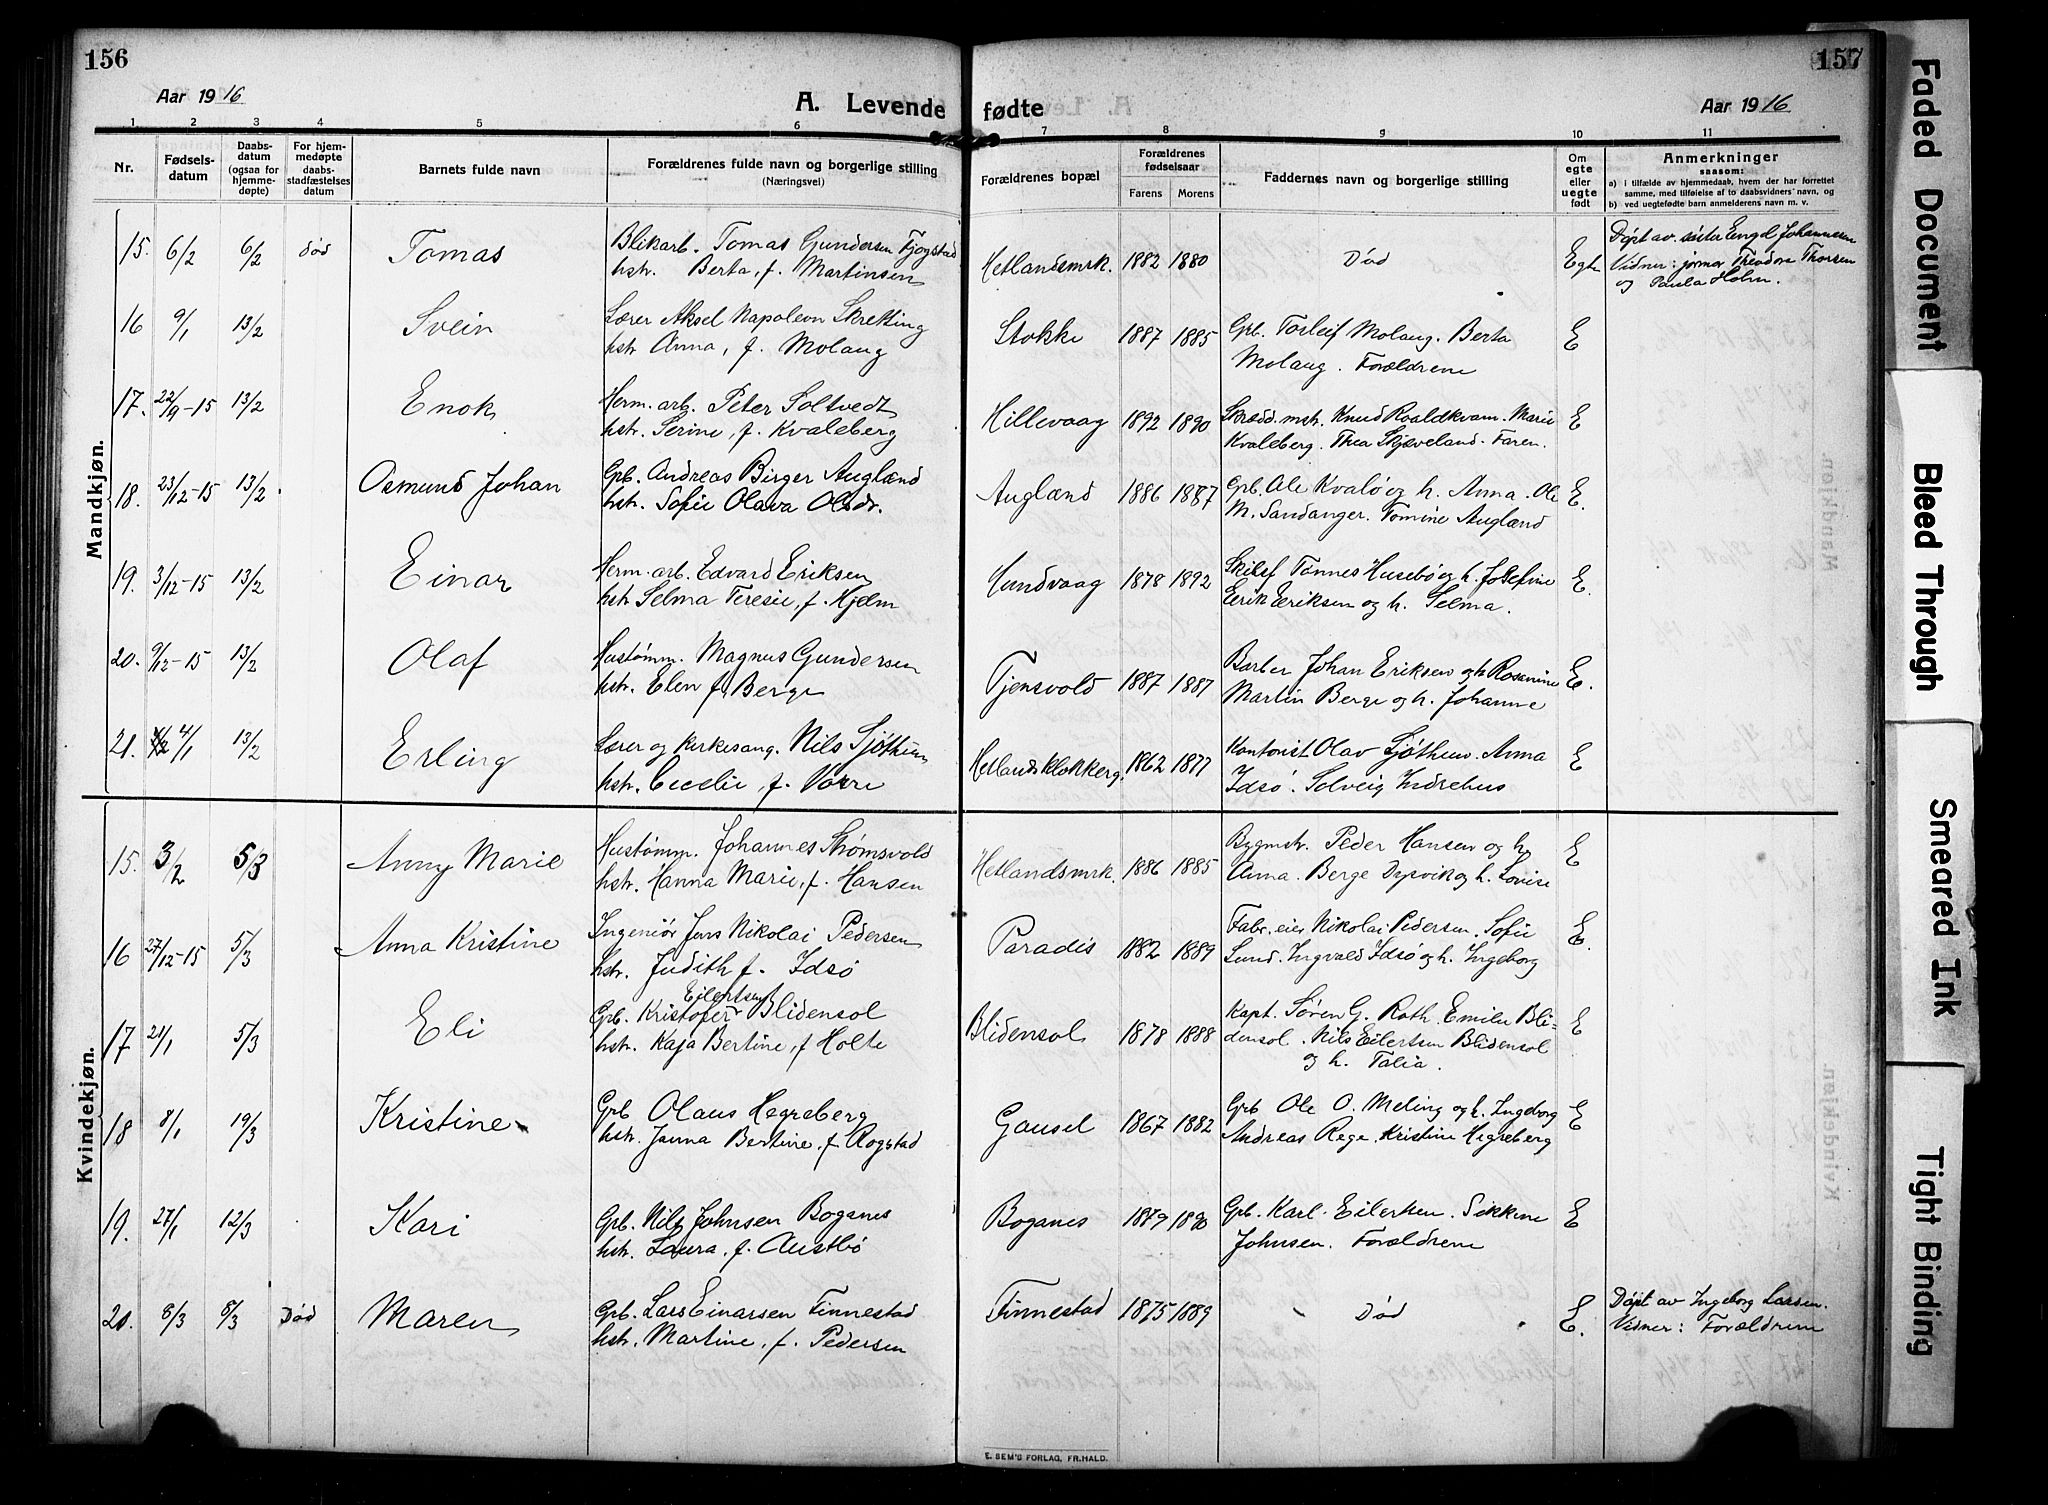 156
157
Aar 1916
A. Levende fødte
Aar 1916
1 2 3 4 5 6 7 8 9 10 11
Nr.
Fødsels-
datum
Daabs-
datum
(ogsaa for
hjemme-
døpte)
For hjem-
medøpte
daabs-
stadfæstelses
datum
Barnets fulde navn
Forældrenes fulde navn og borgerlige stilling
(Næringsvei)
Forældrenes bopæl
Forældrenes
fødselsaar
Farens Morens
Faddernes navn og borgerlige stilling
Om
egte
eller
uegte
født
Anmerkninger
saasom:
a) i tilfælde av hjemmedaab, hvem der har forrettet
samme, med tilføielse af to daabsvidners' navn, og
b) ved uegtefødte barn anmelderens navn m. v.
Mandkjøn.
15. 6/2 6/2 død Tomas Blikarb. Tomas Gundersen Fjogstad
hstr. Berta, f. Martinsen
Hetlandsmrk. 1882 1880 Død Egte
Døpt av søster Engel Johannesen
Vidner: jormor Theodora Thorsen
og Paula Holm.
16 9/1 13/2 Svein Lærer Aksel Napoleon Skretting
hstr Anna, f. Molaug
Stokke 1887 1885 Gpb. Torleif Molaug. Berta
Molaug. Forældrene E
17. 22/9-15 13/2 Enok Herm. arb. Peter Soltvedt
hstr. Serine, f. Kvaleberg
Hillevaag 1892 1890 Skrædd. mstr. Knud Roaldkvam. Marie
Kvaleberg. Thea Skjæveland. Faren. E
18. 23/12-15 13/2. Osmund Johan Gpb. Andreas Birger Augland
hstr. Sofie Olava Olsdr.
Augland 1886 1887 Gpb. Ole Kvalø og h. Anna. Ole
M. Sandanger. Tomine Augland E.
19. 3/12-15 13/2 Einar Herm. arb. Edvard Eriksen
hstr Selma Teresie, f. Hjelm
Hundvaag 1878 1892 Skilsf Tønnes Husebø og h. Josefine
Eerik Eriksen og h. Selma. E.
20. 9/12-15 13/2 Olaf Hustømm. Magnus Gundersen
hstr. Elen f. Berge
Tjensvold 1887 1887 Barber Johan Eriksen og h Rosanine
Martin Berge og h. Johanne E.
21. 4/1 13/2 Erling Lærer og kirkesang. Nils Sjøthun
hstr. Cecelie, f. Vorre
Hetlandsklokkerg. 1862 1877 Kontorist Olav Sjøthun. Anna
Idsø. Solveig Indrehus E
Kvindekjøn.
15. 3/2 5/3 Anny Marie Hustømm. Johannes Strømsvold
hstr. Hanna Marie, f. Hansen
Hetlandsmrk. 1886 1885 Bygmstr. Peder Hansen og h.
Anna. Berge Dysvik og h. Lovise E
16 27/12-15 5/3 Anna Kristine Ingeniør Jens Nikolai Pedersen
hstr. Judith f. Idsø
Paradis 1882 1889 Fabr. eier Nikolai Pedersen. Sofie
Lund. Ingvald Idsø og h. Ingeborg E.
17 21/1 5/3 Eli Gpb. Kristofer Eilertsen Blidensol
hstr. Kaja Bertine, f Holte
Blidensol 1878 1888 Kapt. Søren G. Roth. Emilie Bli-
densol. Nils Eilertsen Blidensol
og h. Talia. E
18 8/1 19/3 Kristine Gpb Olaus Hegreberg
hstr. Janna Bertine, f Rogstad
Gausel 1867 1882 Gpb Ole O. Meling og h. Ingeborg
Andreas Rege. Kristine Hegreberg E
19. 27/1 12/3 Kari Gpb. Nils Johnsen Boganes
hstr. Laura, f. Austbø
Boganes 1879 1890 Gpb. Karl Eilertsen. Sikkine
Johnsen. Forældrene E
20. 8/3 8/3 Død Maren Gpb. Lars Einarsen Finnestad
hstr. Martine, f. Pedersen
Finnestad 1875 1889 Død E.
Døpt av Ingeborg Larsen.
Vidner: Forældrene
E. SEM'S FORLAG, FR.HALD.
Faded Document
Bleed Through
Smeared Ink
Tight Binding